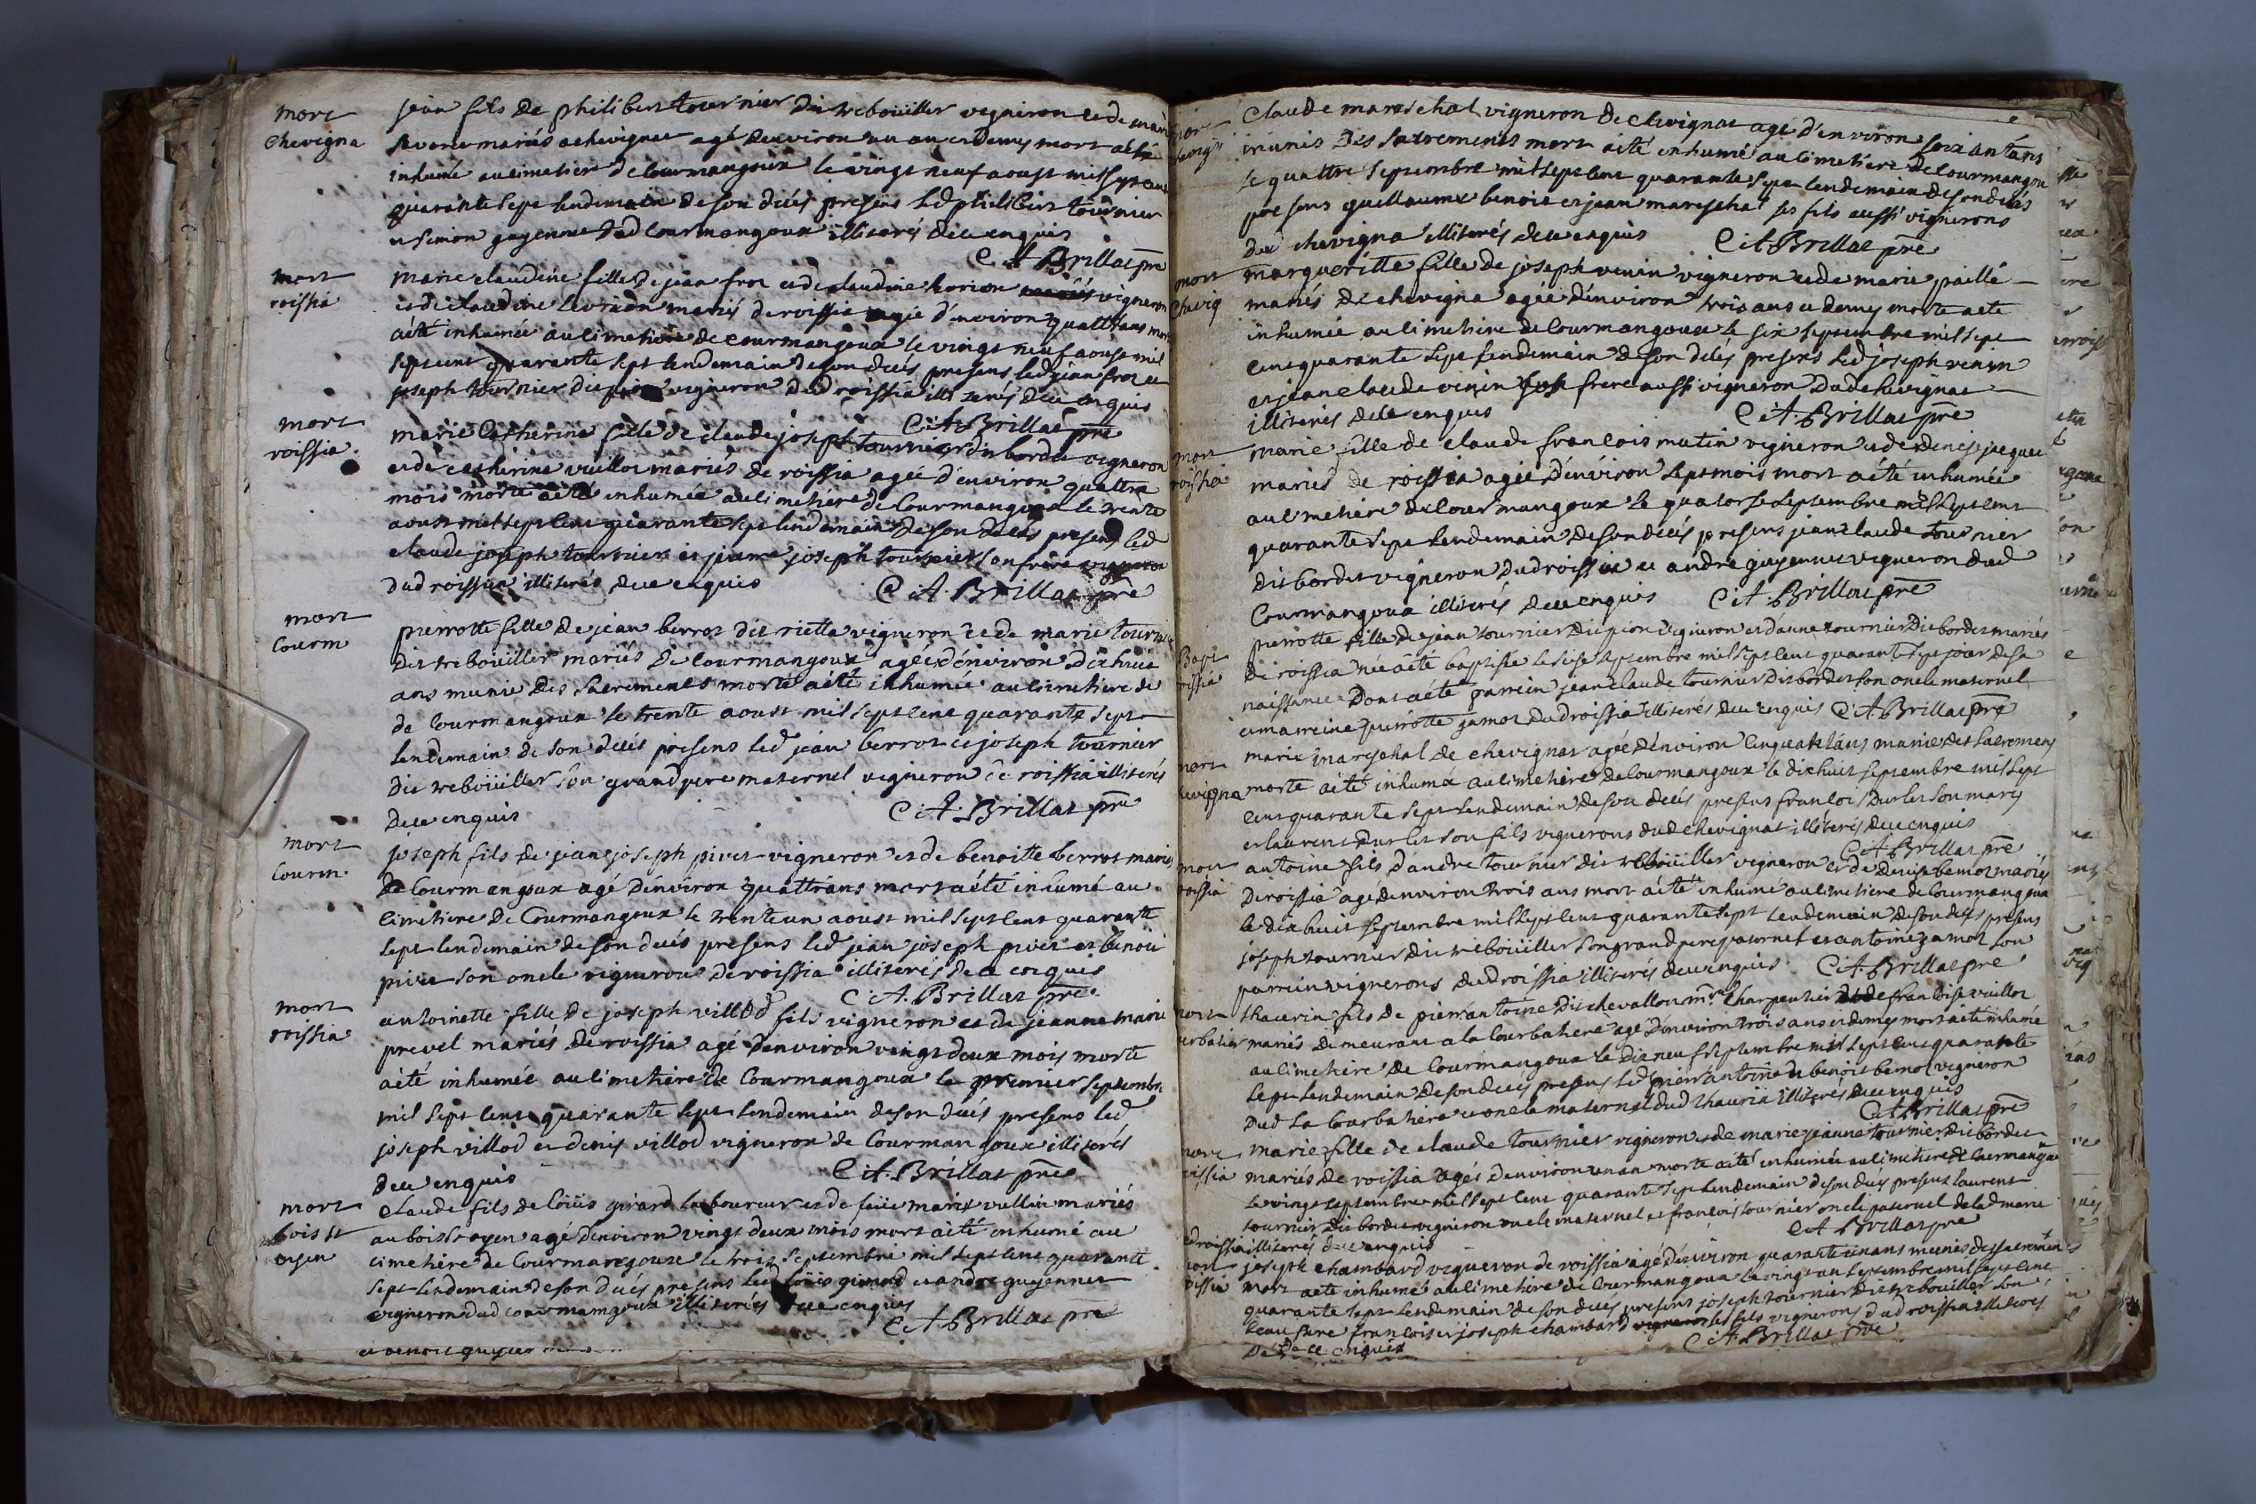 mort
Chevigna
jean fils de philibert tournier dit rebouiller vigneron et de
mariés a chevignat agé denviron un an et demy mort a été
inhumé au cimetier de Courmangoux le vingt neuf aoust mil sept cent
quarante sept lendemain de son décés presens led philibert tournier
et simon guyennet dud Courmangoux illiterés de ce enquis
C A Brillat pre
mort
roissia
marie claudine fille de jean froz et de claudine vigneron
et de claudine mariés de roissia agée d'environ quattr'ans morte
a été inhumée au cimetiere de courmangoux le vingt neuf aoust mil
sept cent quarante sept lendemain de son décés presens led jean froz et
joseph tournier dit vigneron dud roissia illiterés de ce enquis
C A Brillat pre
mort
roissia
marie Catherine fille de claude joseph tournier dit bordet vigneron
et de catherine vuillot mariés de roissia agée d'environ quattre
mois morte a été inhumée au cimetiere de Courmangoux le trente
aoust mil sept cent quarante sept lendemain de son décés presens led
claude joseph tournier et pierre joseph tournier son frere vigneron
dud roissia illiterés de ce enquis
C A Brillat pre
mort
Courm
pierrotte fille de jean berrot dit rietta vigneron et de marie tournier
dit rebouiller mariés de Courmangoux agée d'environ dixhuit
ans munie des sacrements morte a été inhumée au cimetiere de
de Courmangoux le trente aoust mil sept cent quarante sept
lendemain de son décés presens led jean berrot et joseph tournier
dit rebouiller son grand pere maternel vigneron de roissia illiterés
de ce enquis
C A Brillat pre
mort
Courm
joseph fils de jean joseph pivet vigneron et de benoitte berrot mariés
de Courmangoux agé d'environ quattr'ans mort a été inhumé au
cimetiere de Courmangoux le trente un aoust mil sept cent quarante
sept lendemain de son décés presens led jean joseph pivet et benoit
pivet son oncle vignerons de roissia illiterés de ce enquis
C A Brillat pre
mort
roissia
antoinette fille de joseph villod fils vigneron et de jeanne marie
prevel mariés de roissia agé d'environ vingt deux mois morte
a été inhumée au cimetiere de Courmangoux le premier septembre
mil sept cent quarante sept lendemain de son décés presens led
joseph villod et denis villod vigneron de Courmangoux illiterés
de ce enquis
C A Brillat pre
mort
bois st
oyen
Claude fils de loüis girard laboureur et de feüe marie vullin mariés
au bois st oyen agé d'environ vingt deux mois mort a été inhumé au
cimetiere de Courmangoux le trois septembre mil sept cent quarante
sept lendemain de son décés presens led loüis girard et andre guyennet
vigneron dud courmangoux illiterés de ce enquis
C A Brillat pre
mort
Claude mareschal vigneron de chevignat agé d'environ soixant'ans
munis des sacrements mort a été inhumé au cimetiere de Courmangoux
le quattre septembre mil sept cent quarante sept lendemain de son décés
presens guillaume benoit et jean mareschal ses fils aussi vignerons
de chevigna illiterés de ce enquis
C A Brillat pre
mort
Chevig
marguerite fille de joseph venin vigneron et de marie paillé
mariés de chevigna agée d'environ trois ans et demy morte a eté
inhumée au cimetiere de Courmangoux le six septembre mil sept
cent quarante sept lendemain de son décés presens led joseph venin
et jean claude venin son frere aussi vigneron dud chevignat
illiterés de ce enquis
C A Brillat pre
mort
roissia
marie fille de claude francois mutin vigneron et de denise jacquet
mariés de roissia agée d'environ sept mois mort a été inhumée
au cimetiere de Courmangoux le quatorse septembre mil sept cent
quarante sept lendemain de son décés presens jean claude tournier
dit bordet vigneron dud roissia et andré guyennet vigneron dud
Courmangoux illiterés de ce enquis
C A Brillat pre
Bapt
roissia
pierrotte fille de jean tournier dit pion vigneron et d'anne tournier dit bordet mariés
de roissia née a été baptisée le seise septembre mil sept cent quarante sept jour de sa
naissance dont a été parrein jean claude tournier dit bordet son oncle maternel
et marreine pierrotte jamot dud roissia illiterés de ce enquis C A Brillat pre
mort
chevigna
marie mareschal de chevignat agée d'environ cinquant'ans munie des sacremens
morte a été inhumée au cimetiere de Courmangoux le dixhuit septembre mil sept
cent quarante sept lendemain de son décés presens francois durlet son mary
et laurent durlet son fils vignerons dud chevignat illiterés de ce enquis
C A Brillat pre
mort
roissia
antoine fils d'andre tournier dit rebouiller vigneron et de denise bemot mariés
de roissia agé denviron trois ans mort a été inhumé au cimetiere de Courmangoux
le dixhuit septembre mil sept cent quarante sept lendemain de son décés presens
joseph tournier dit rebouiller son grand pere paternel et antoine jamot son
parrein vignerons dud roissia illiterés de ce enquis
C A Brillat pre
mort
fils de pierr'antoine dit chevallon mtre Charpentier et de francoise vuillot
mariés demeurant a la Courbatiere agé d'environ trois ans et demy mort a été inhumé
au cimetiere de Courmangoux le dix neuf septembre mil sept cent quarante
sept lendemain de son décés presens led pierr'antoine et benoit bemot vigneron
dud la Courbatiere et oncle maternel dud illiterés de ce enquis
C A Brillat pre
mort
roissia
marie fille de claude tournier vigneron et de marie jeanne tournier dit bordet
mariés de roissia agée denviron un an morte a été inhumée au cimetiere de Courmangoux
le vingt septembre mil sept cent quarante sept lendemain de son décés presens laurent
tournier dit bordet vigneron oncle maternel et francois tournier oncle paternel de lad marie
de roissia illiterés de ce enquis
C A Brillat pre
mort
roissia
joseph chambard vigneron de roissia agé d'environ quarante un ans munis des sacremens
mort a été inhumé au cimetiere de Courmangoux le vingt un septembre mil sept cent
quarante sept lendemain de son décés presens joseph tournier dit rebouiller son
beau frere francois et joseph chambard ses fils vignerons dud roissia illiterés
de ce enquis
C A Brillat pre